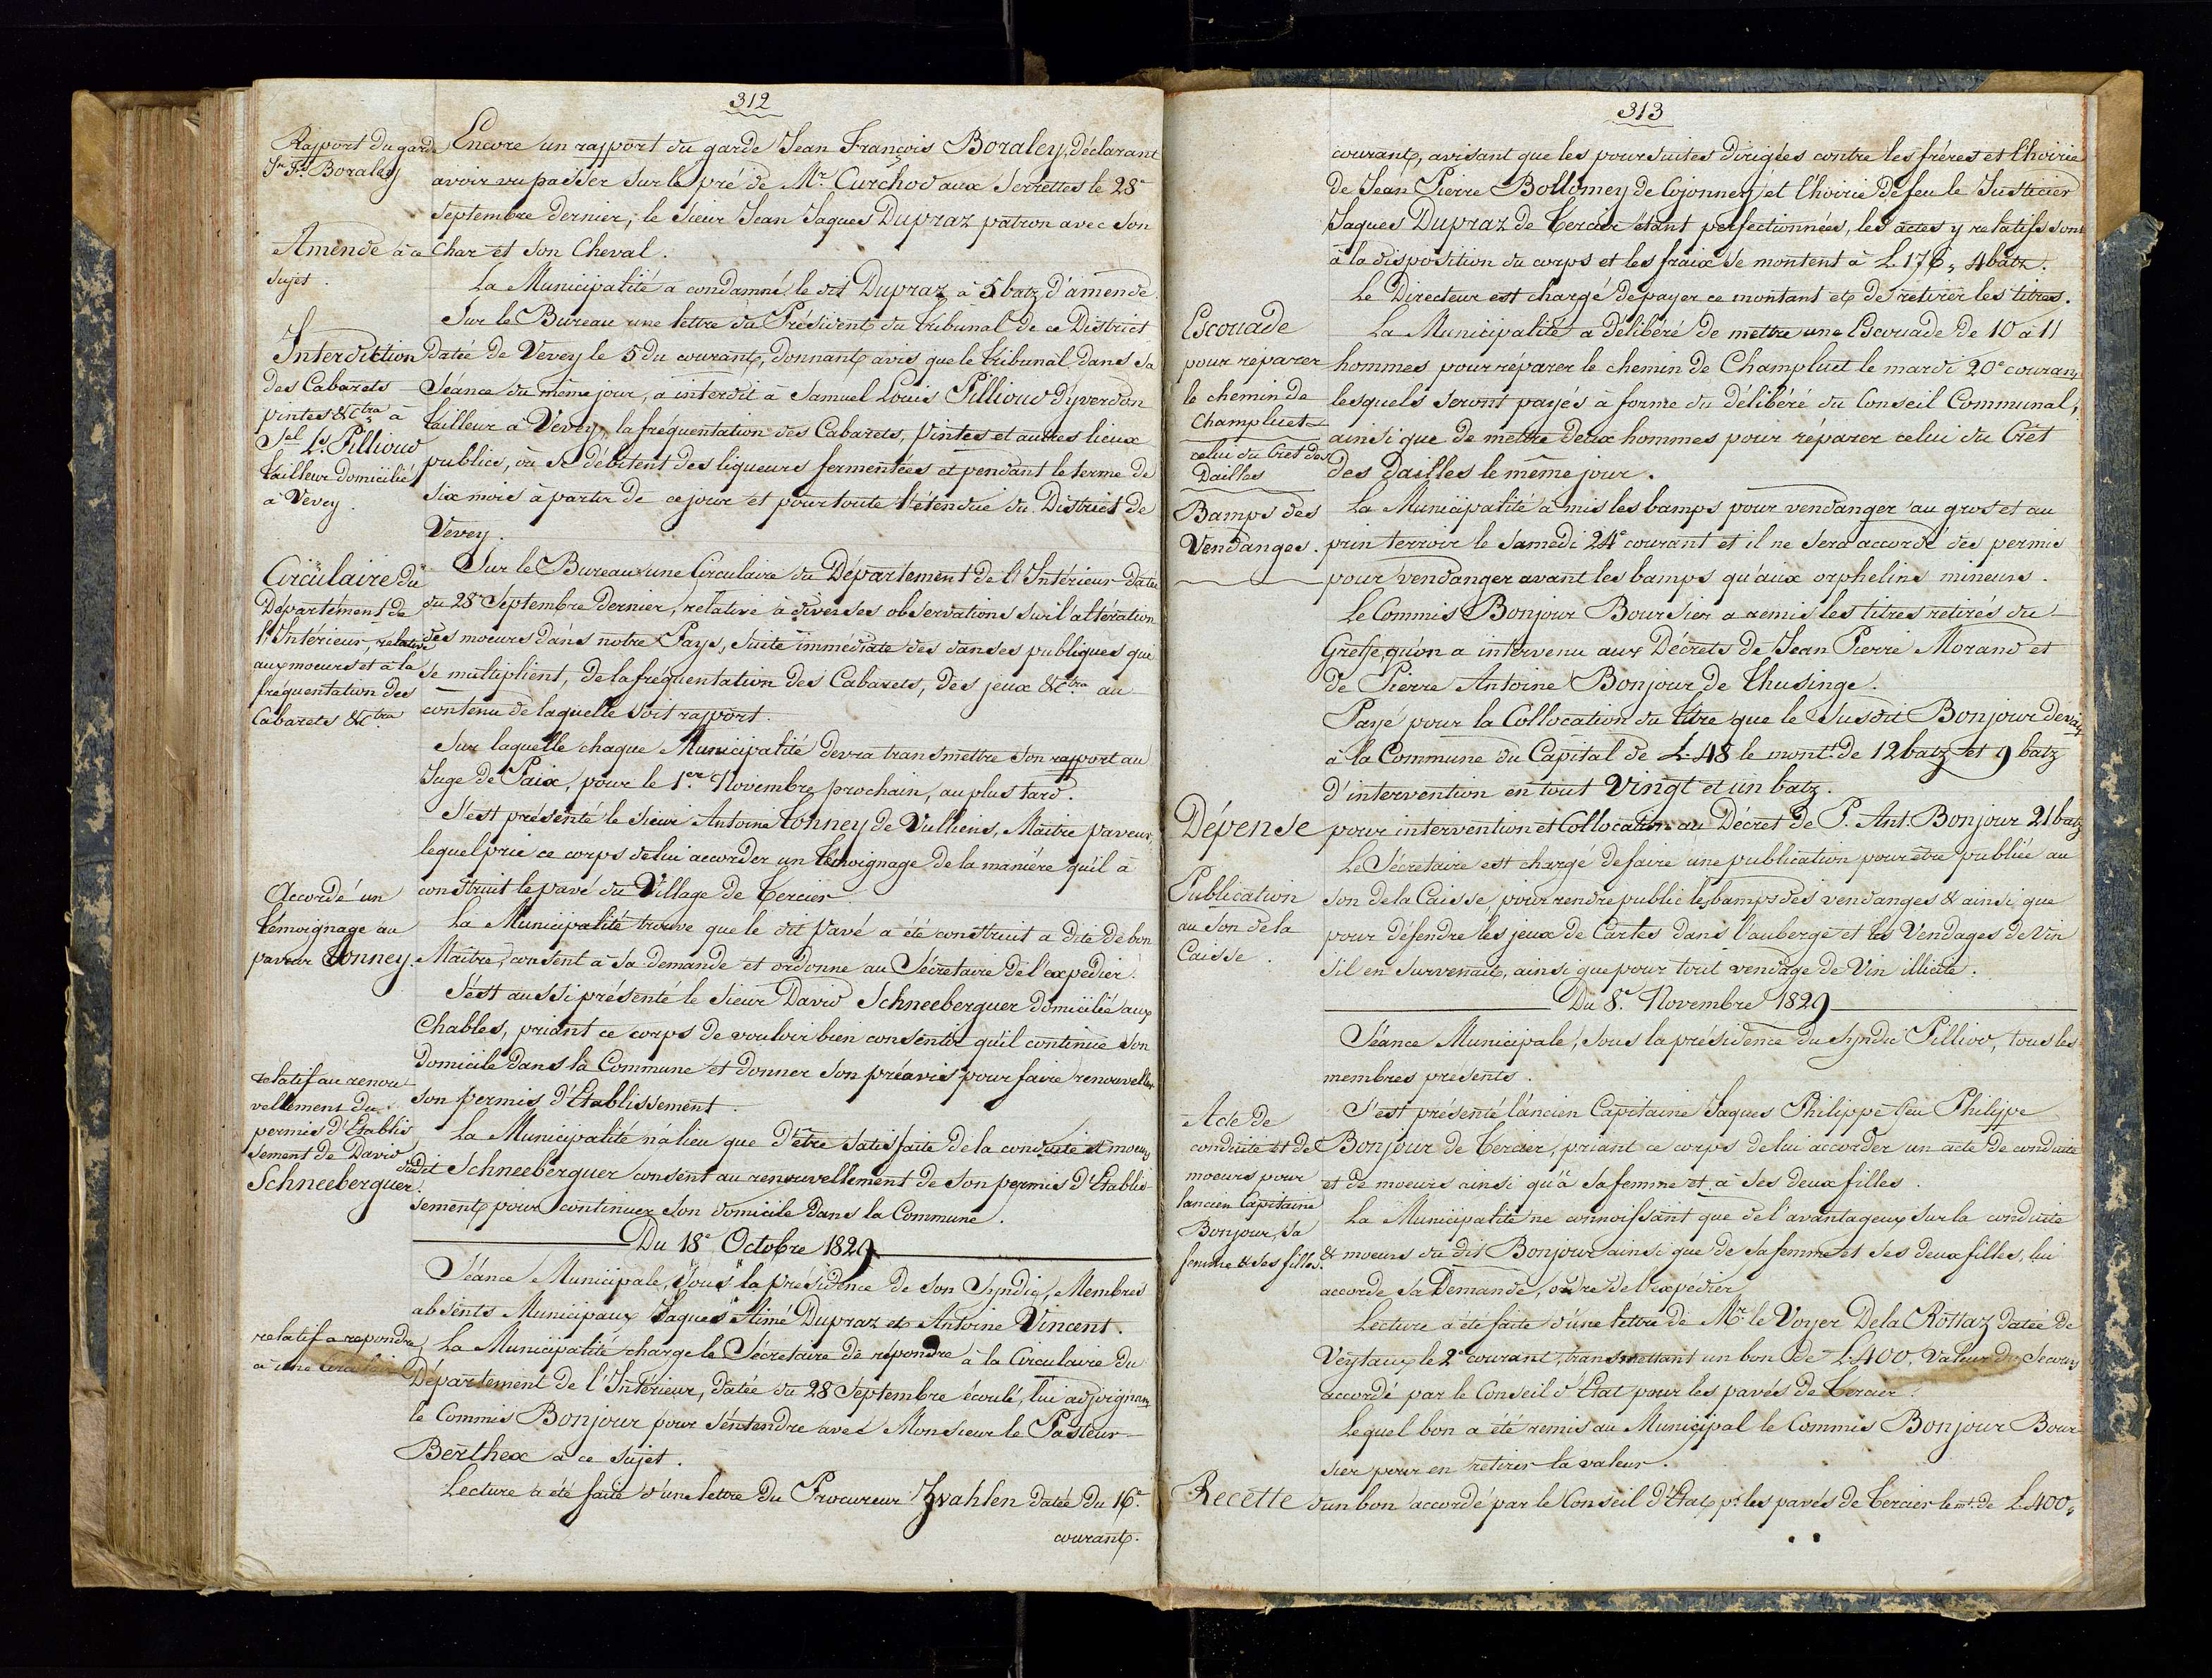 312
Rapport du garde
Jn Fs Boraley
Encore un rapport du garde Jean François Boraley, déclarant
avoir vu passer sur le pré de Mr. Curchod aux Serrettes le 28e
Septembre dernier, le Sieur Jean Jaques Dupraz patron avec son
Char et son Cheval.
Amende à ce
sujet.
La Municipalité a condamné le dit Dupraz à 5 batz d'amende.
Sur le Bureau une lettre du Président du Tribunal de ce District
Interdiction
des Cabarets
pintes &ctra à
Sel Ls. Pillioud
tailleur domicilié
à Vevey.
datée de Vevey le 5 du courant, donnant avis que le Tribunal dans sa
Séance du même jour, a interdit à Samuel Louis Pillioud d'yverdon
tailleur à Vevey, la fréquentation des Cabarets, Pintes et autres lieux
publics, où se débitent des liqueurs fermentées et pendant le terme de
Six mois à partir de ce jour et pour toute l'étendue du District de
Vevey.
Circulaire du
Département de
l'Intérieur, relative
aux moeurs et à la
fréquentation des
Cabarets &ctra
Sur le Bureau une Circulaire du Département de l'Intérieur datée
du 28e Septembre dernier, relative à diverses observations sur l'altération
des moeurs dans notre Pays, suite immédiate des danses publiques que
se multiplient, de la fréquentation des Cabarets, des jeux &ctra au
contenu de laquelle soit rapport.
Sur laquelle chaque Municipalité devra transmettre son rapport au
Juge de Paix, pour le 1.er Novembre prochain, au plus tard.
S'est présenté le Sieur Antoine Tonney de Vulliens, Maitre paveur,
lequel prie ce corps de lui accorder un témoignage de la manière qu'il à
construit le pavé du Village de Tercier.
Accordé un
témoignage au
paveur Tonney.
La Municipalité trouve que le dit Pavé a été construit a dite de bon
Maître, consent à sa demande et ordonne au Sécretaire de l'expédier.
S'est aussi présenté le Sieur David Schneeberguer domicilié aux
Chables, priant ce corps de vouloir bien consentir qu'il continue son
domicile dans la Commune et donner son préavis pour faire renouveller
son permis d'Etablissement.
relatif au renou
vellement du
permis d'Etablis
sement de David
Schneeberguer.
La Municipalité n'a lieu que d'être satisfaite de la conduite et moeurs
dudit Schneeberguer consent au renouvellement de son permis d'Etablis-
sement pour continuer son domicile dans la Commune.
Du 18e Octobre 1829
Séance Municipale, sous la présidence de son Syndic, Membres
absents Municipaux Jaques Aimé Dupraz et Antoine Vincent.
relatif a repondre
a une
La Municipalité charge le Sécretaire de répondre à la Circulaire du
Département de l'Intérieur, datée du 28 Septembre écoulé, lui adjoignant
le Commis Bonjour pour s'entendre avec Monsieur le Pasteur
Berthex à ce sujet.
Lecture a été faite d'une lettre du Procureur Zvahlen datée du 16e
courant.
313
courant, avisant que les poursuites dirigées contre les fréres et l'hoirie
de Jean Pierre Bollomey de Cojonney et l'hoirie de feu le Justicier
Jaques Dupraz de Tercier étant perfectionnées, les actes y relatifs sont
à la disposition du corps et les fraix se montent à L. 176, 4 batz.
Le Directeur est chargé de payer ce montant et de retirer les titres.
Escouade
pour réparer
le chemin de
Champluet
celui du Cret des
Dailles
La Municipalité a délibéré de mettre une Escouade de 10 à 11
hommes pour réparer le chemin de Champluet le mardi 20e courant
lesquels seront payés à forme du délibéré du Conseil Communal,
ainsi que de mettre deux hommes pour réparer celui du Crêt
des dailles le même jour.
Bamps des
Vendanges.
La Municipalité a mis les bamps pour vendanger au gros et au
prin terroir le Samedi 24e courant et il ne sera accordé des permis
pour vendanger avant les bamps qu'aux orphelins mineurs.
Le Commis Bonjour Boursier a remis les titres retirés du
Greffe, qu'on a intervenu aux Décrets de Jean Pierre Morand et
de Pierre Antoine Bonjour de Thusinge.
Payé pour la Collocation du titre que le susdit Bonjour devait
à la Commune du Capital de L. 48 le mont.t de 12 batz et 9 batz
d'intervention en tout Vingt et un batz.
Dépense pour intervention et Collocation au Décret de P. Ant. Bonjour 21 batz
Publication
au son de la
Caisse.
Le Sécretaire est chargé de faire une publication pour être publiée au
son de la Caisse, pour rendre public les bamps des vendanges & ainsi que
pour défendre les jeux de Cartes dans l'auberge et les Vendages de Vin
s'il en survenait, ainsi que pour tout vendage de Vin illicite.
Du 8e. Novembre 1829
Séance Municipale, sous la présidence du Syndic Pilliod, tous les
membres présents.
Acte de
conduite et de
moeurs pour
l'ancien Capitaine
Bonjour, sa
femme & ses filles.
S'est présenté l'ancien Capitaine Jaques Philippe feu Philippe
Bonjour de Tercier, priant ce corps de lui accorder un acte de conduite
et de moeurs ainsi qu'à sa femme et à ses deux filles.
La Municipalité ne connoissant que de l'avantageux sur la conduite
& moeurs du dit Bonjour ainsi que de sa femme et ses deux filles, lui
accorde sa Demande, ordre de l'expédier.
Lecture a été faite d'une lettre de Mr. le Voyer Dela Rottaz datée de
Veytaux le 2e courant, transmettant un bon de L. 400. valeur du secours
accordé par le Conseil d'Etat pour les pavés de Tercier.
Lequel bon a été remis au Municipal le Commis Bonjour Bour
sier pour en retirer la valeur.
Recette d'un bon accordé par le Conseil d'Etat pr. les pavés de Tercier le mt. de L. 400,